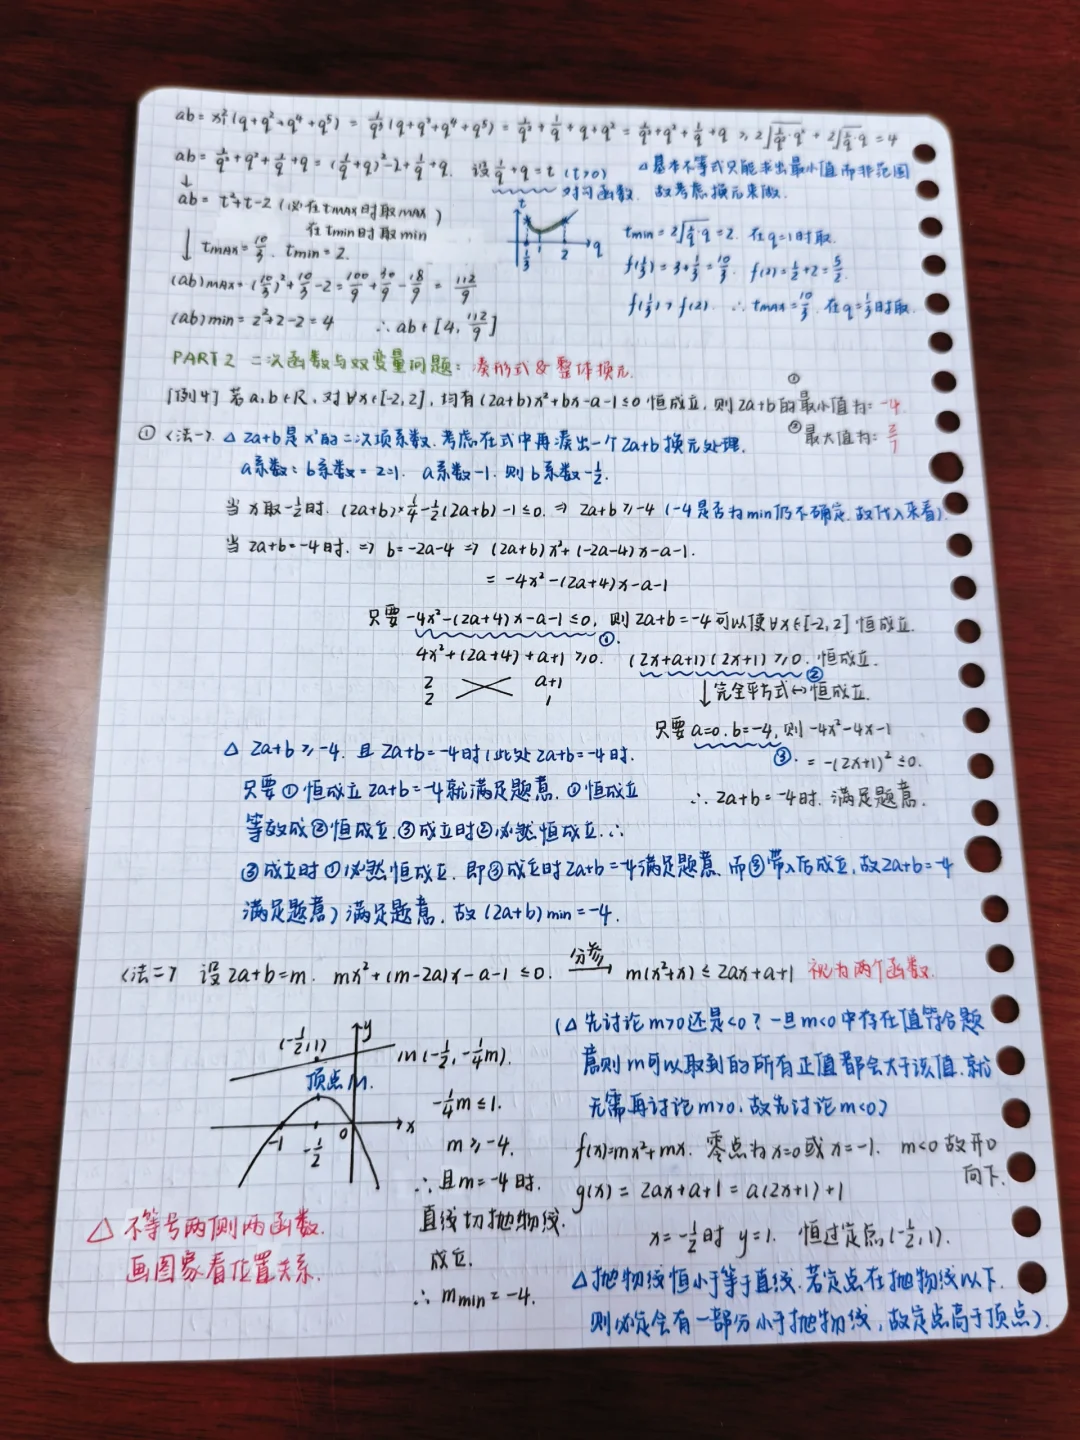 ab = x₁²(q+q²+q⁴+q⁵) = 1/q³(q+q²+q⁴+q⁵) = 1/q²+1/q+q+q² = 1/q²+q²+1/q+q ≥ 2√(1/q²·q²) + 2√(1/q·q) = 4
ab = 1/q²+q²+1/q+q = (1/q+q)²-2+1/q+q. 设1/q+q=t (t>0)
对勾函数.
△基本不等式只能求出最小值而非范围
故考虑换元来做.
↓
ab = t²+t-2 (必在tmax时取max
在tmin时取min)
↓ tmax=10/3. tmin=2.
t
q
1/3 1 2
tmin = 2√(1/q·q) = 2. 在q=1时取.
f(1/3) = 3+1/3 = 10/3. f(2) = 1/2+2 = 5/2.
f(1/3) > f(2). ∴ tmax = 10/3. 在q=1/3时取.
(ab)max = (10/3)²+10/3-2 = 100/9+30/9-18/9 = 112/9
(ab)min = 2²+2-2 = 4 ∴ab∈[4, 112/9]
PART2 二次函数与双变量问题: 凑形式&整体换元.
[例4] 若a,b∈R, 对∀x∈[-2,2], 均有(2a+b)x²+bx-a-1≤0恒成立, 则2a+b的①最小值为: -4
②最大值为: 2/7
① <法一> △ 2a+b是x²的二次项系数, 考虑在式中再凑出一个2a+b换元处理.
a系数: b系数 = 2:1. a系数-1. 则b系数-1/2.
当x取-1/2时. (2a+b)×1/4-1/2(2a+b)-1≤0. ⇒ 2a+b≥-4 (-4是否为min仍不确定, 故代入来看).
当2a+b=-4时. ⇒ b=-2a-4 ⇒ (2a+b)x²+(-2a-4)x-a-1.
= -4x²-(2a+4)x-a-1
只要-4x²-(2a+4)x-a-1≤0, 则2a+b=-4可以使∀x∈[-2,2]恒成立.
①.
4x²+(2a+4)+a+1≥0. (2x+a+1)(2x+1)≥0. 恒成立.
②
2 a+1
2 1
↓完全平方式⇔恒成立.
只要a=0, b=-4, 则-4x²-4x-1
③. = -(2x+1)²≤0.
∴ 2a+b=-4时. 满足题意.
△ 2a+b≥-4. 且2a+b=-4时(此处2a+b=-4时.
只要①恒成立2a+b=-4就满足题意. ①恒成立
等效成②恒成立. ③成立时②必然恒成立. ∴
③成立时①必然恒成立. 即③成立时2a+b=-4满足题意. 而③带入后成立, 故2a+b=-4
满足题意)满足题意. 故(2a+b)min=-4.
<法二> 设2a+b=m. mx²+(m-2a)x-a-1≤0. 分参→ m(x²+x)≤2ax+a+1 视为两个函数.
(-1/2,1)
y
顶点M.
x
-1 -1/2 0
m(-1/2, -1/4m).
-1/4m≤1.
m≥-4.
∴且m=-4时.
直线切抛物线.
成立.
∴ mmin=-4.
△ 不等号两侧两函数.
画图象看位置关系.
(△先讨论m>0还是<0? 一旦m<0中存在值符合题
意则m可以取到的所有正值都会大于该值, 就
无需再讨论m>0. 故先讨论m<0)
f(x)=mx²+mx. 零点为x=0或x=-1. m<0故开口
向下.
g(x) = 2ax+a+1 = a(2x+1)+1
x=-1/2时 y=1. 恒过定点(-1/2,1).
△抛物线恒小于等于直线. 若定点在抛物线以下.
则必定会有一部分小于抛物线, 故定点高于顶点).